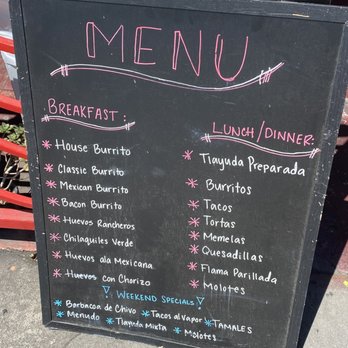 MENU
BREAKFAST:
* House Burrito
* Classic Burrito
* Mexican Burrito
* Bacon Burrito
* Huevos Rancheros
* Chilaquiles Verde
* Huevos ala Mexicana
* Huevos con Chorizo
LUNCH/DINNER:
* Tlayuda Preparada
* Burritos
* Tacos
* Tortas
* Memelas
* Quesadillas
* Flama Parillada
* Molotes
WEEKEND SPECIALS
* Barbacoa de Chivo * Tacos al Vapor * TAMALES
* Menudo * Tlayuda Mixta * Molotes